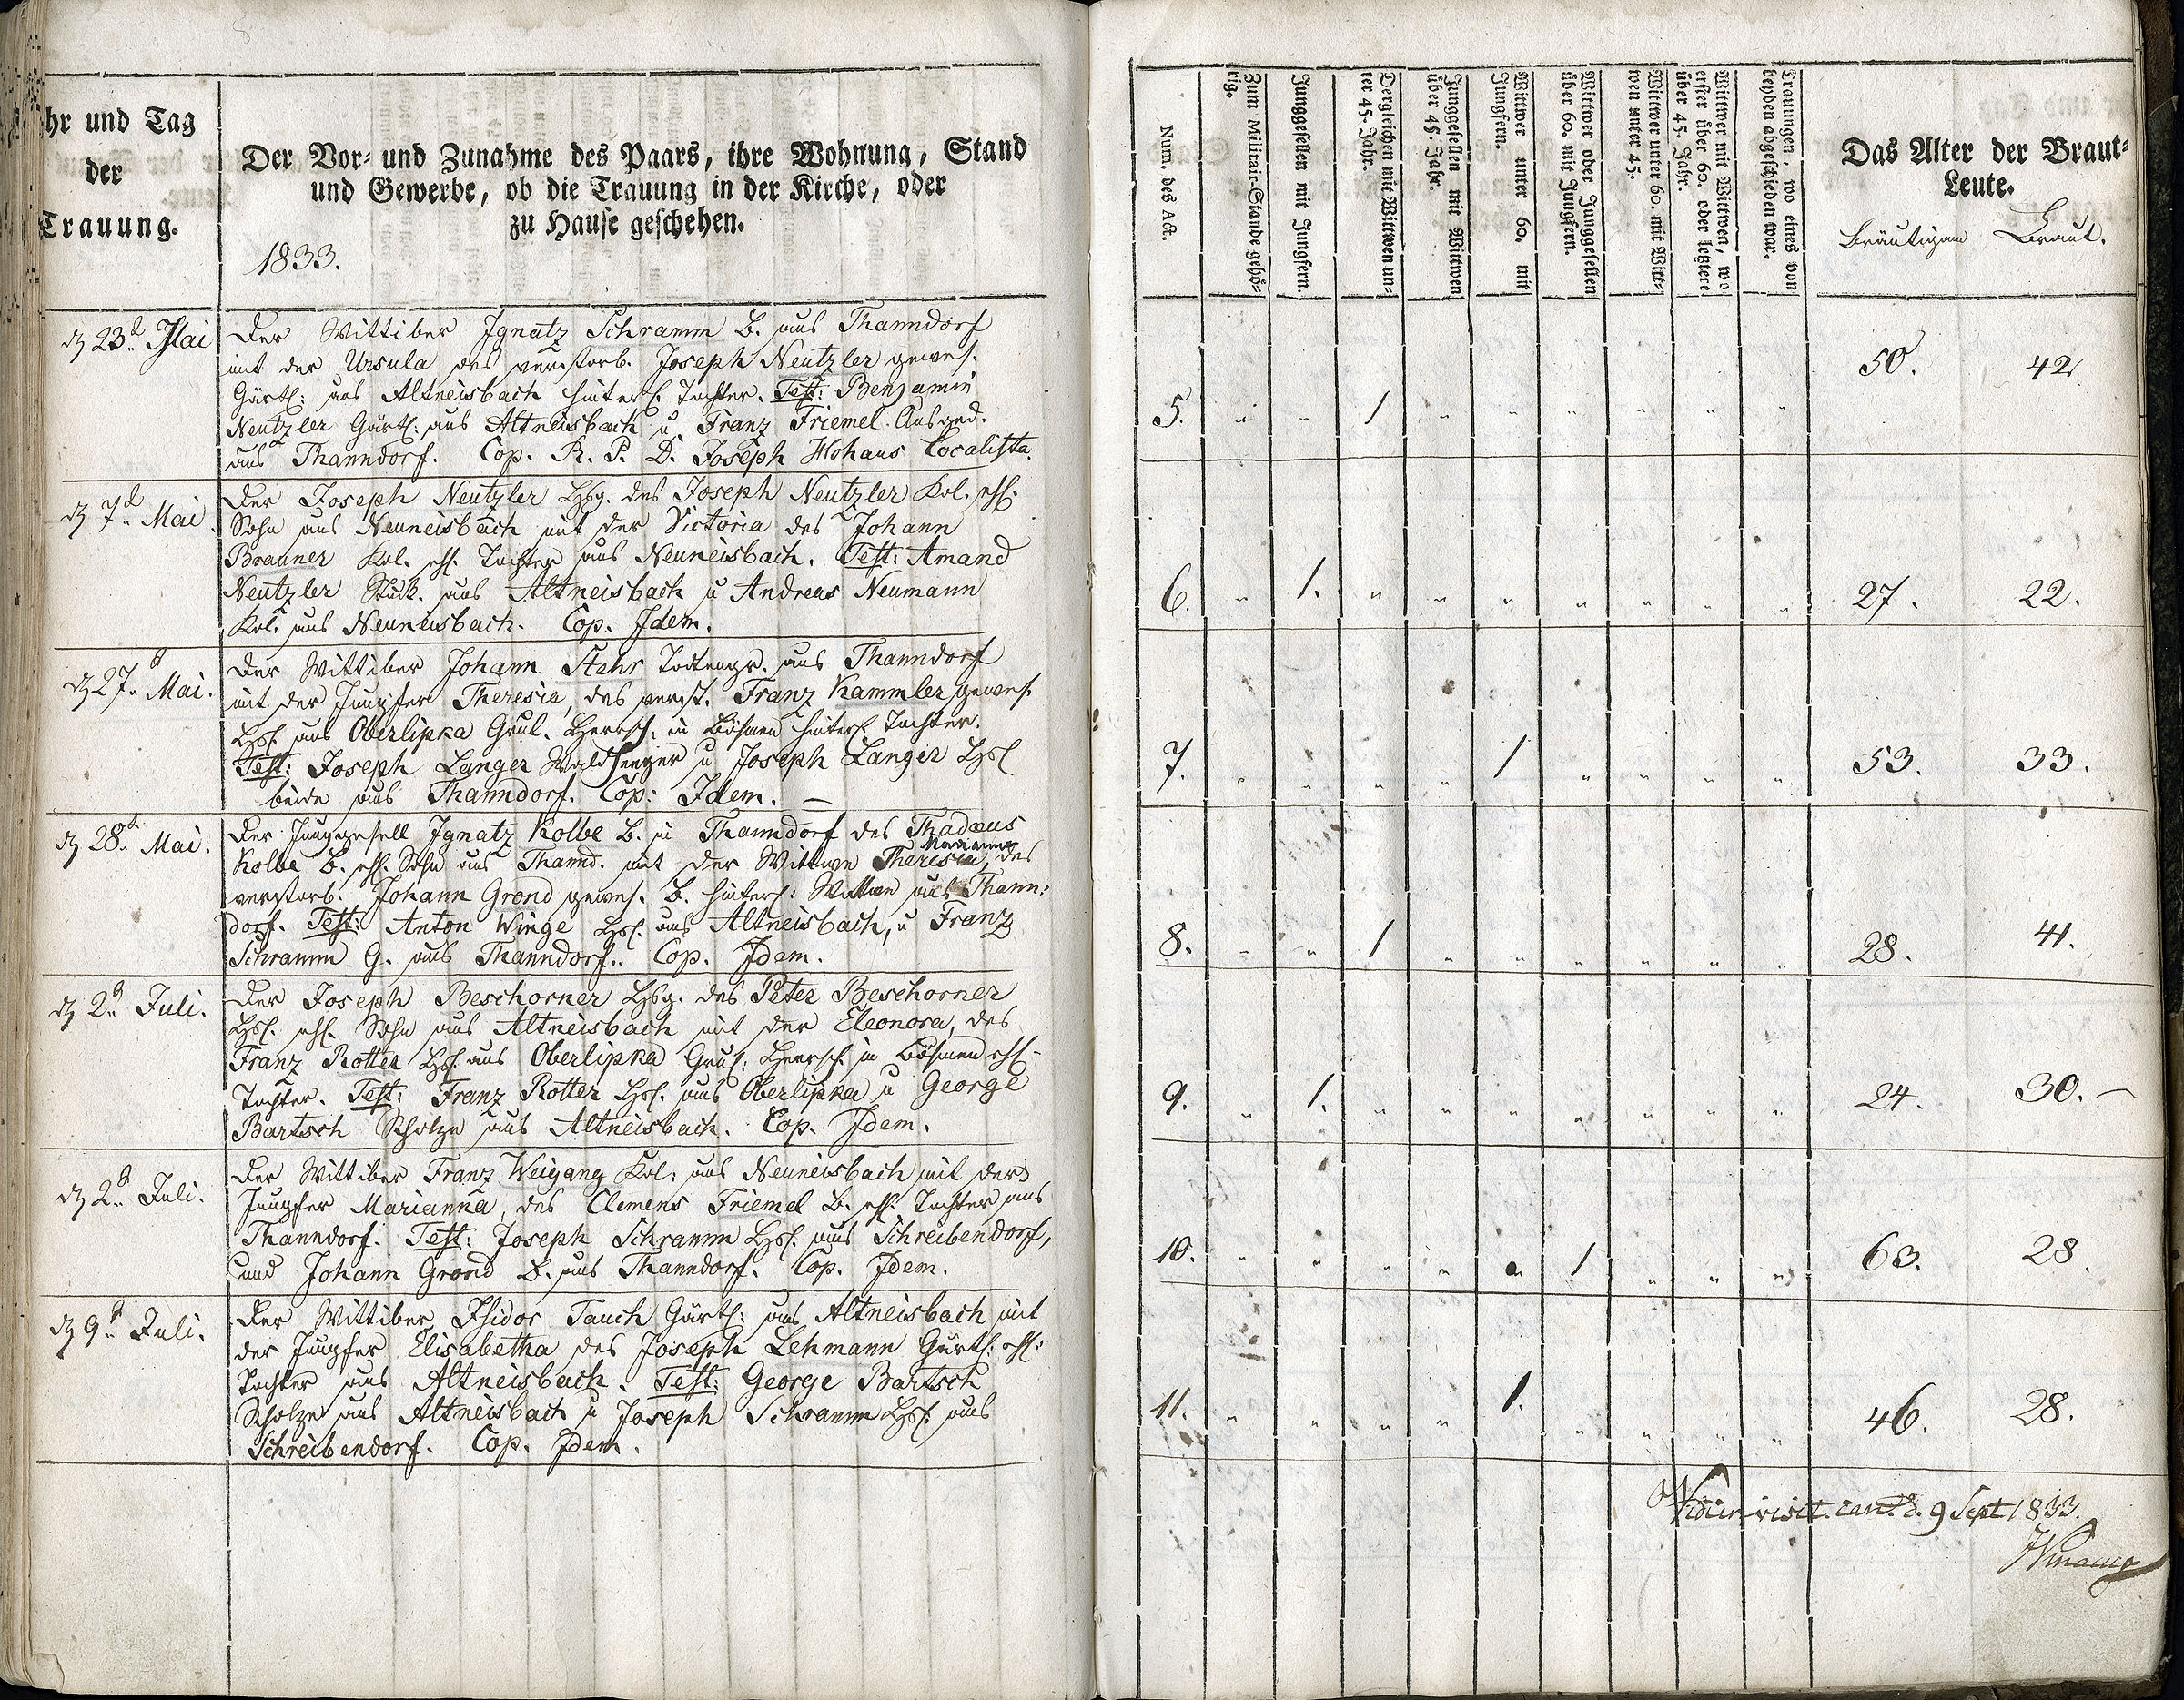 hr und Tag
der
Trauung.
Der Vor- und Zunahme des Paars, ihre Wohnung, Stand
und Gewerbe, ob die Trauung in der Kirche, oder
zu Hause geschehen.
1833.
Num. des Act.
Zum Militair-Stande gehö-
rig.
Junggesellen mit Jungfern.
Dergleichen mit Wittwen un-
ter 45. Jahr.
Junggesellen mit Wittwen
über 45. Jahr.
Wittwer unter 60. mit
Jungfern.
Wittwer oder Junggesellen
über 60. mit Jungfern.
Wittwer unter 60. mit Witt-
wen unter 45.
Wittwer mit Wittwen, wo
erster über 60. oder letztere
über 45. Jahr.
Trauungen, wo eines von
beyden abgeschieden war.
Das Alter der Braut-
Leute.
Bräutigam Braut.
23. Mai
Der Wittiber Ignatz Schramm B. aus Thanndorf
mit der Ursula des verstorb. Joseph Neutzler gewes.
Gärtl: aus Altneisbach hinterl. Tochter. Test: Benjamin
Neutzler Gärtl. aus Altneisbach u Franz Friemel Ausged.
aus Thanndorf. Cop. R. P. D. Joseph Hohaus Localista.
5. 1 50. 42
7 Mai.
Der Joseph Neutzler des Joseph Neutzler Kol. ehl.
Sohn aus Neuneisbach mit der Victoria des Johann
Brauner Kol. ehl. Tochter aus Neuneisbach. Test: Amand
Neutzler aus Altneisbach u Andreas Neumann
Kol. aus Neuneisbach. Cop. Idem.
6. 1. 27. 22.
27. Mai.
Der Wittiber Johann Stehr Todtengr. aus Thanndorf
mit der Jungfer Theresia, des verst. Franz Kammler gewes.
Hsl. aus Oberlipka Grul. Herrsch. in Böhmen hinterl. Tochter.
Test: Joseph Langer u Joseph Langer Hsl
beide aus Thanndorf. Cop: Idem. —
7. 1 53. 33.
28. Mai.
Der Junggesell Ignatz Kolbe B. in Thanndorf des Thadæus
Kolbe B. ehl. Sohn aus Thannd. mit der Wittwe Theresia, des
Marianna
verstorb. Johann Grond gewes. B. hinterl: Wittwe aus Thann:
dorf. Test: Anton Winge Hsl. aus Altneisbach, u Franz
Schramm G. aus Thanndorf. Cop. Idem.
8. 1 28. 41.
2. Juli.
Der Joseph Beschorner des Peter Beschorner
Hsl. ehl. Sohn aus Altneisbach mit der Eleonora, des
Franz Rotter Hsl. aus Oberlipka Grul: Herrsch in Böhmen ehl-
Tochter. Test: Franz Rotter Hsl. aus Oberlipka u George
Bartsch Scholze aus Altneisbach. Cop. Idem.
9. 1. 24. 30. —
2. Juli.
Der Wittiber Franz Weigang Kol. aus Neuneisbach mit der
Jungfer Marianna, des Clemens Friemel B. ehl. Tochter aus
Thanndorf. Test: Joseph Schramm Hsl. aus Schreibendorf,
und Johann Grond B. aus Thanndorf. Cop. Idem.
10. 1 63. 28.
9. Juli.
Der Wittiber Isidor Tauch Gärtl: aus Altneisbach mit
der Jungfer Elisabetha des Joseph Lehmann Gärtl: ehl:
Tochter aus Altneisbach. Test: George Bartsch
Scholze aus Altneisbach u Joseph Schramm Hsl. aus
Schreibendorf. Cop. Idem.
11. 1. 46. 28.
Vidi in visit. can. d. 9 Sept 1833.